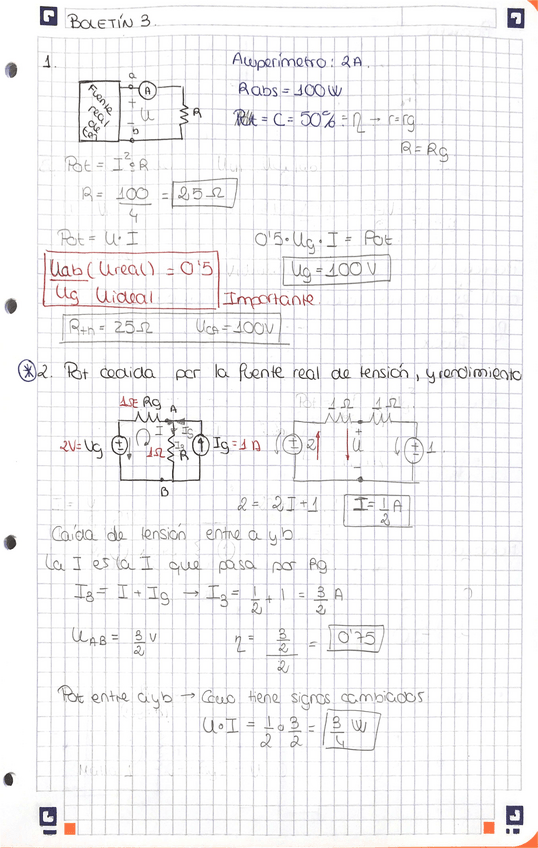 BOLETÍN 3.
1.
Amperímetro: 2A.
a
A
Fuente real de
+
U
-
b
R
Rabs = 100W
= C = 50% = η → r=rg
R = Rg
Pot = I²·R
R = 100/4 = 25 Ω
Pot = U·I
0'5·Ug·I = Pot
Ug = 100 V
Uab (Ureal) = 0'5
Ug Uideal
Importante
R+n = 25Ω UCA = 100V
*2. Pot cedida por la fuente real de tensión, y rendimiento
1Ω Rg A
2V = Ug
I
Ig
1Ω
I3
R
Ig = 1A
B
1Ω 1Ω
2
+
U
-
1
2 = 2I+1 I = 1/2 A
Caída de tensión entre a y b
La I es la I que pasa por Rg
I3 = I + Ig → I3 = 1/2 + 1 = 3/2 A
UAB = 3/2 V η = 3/2/2 = 0'75
Pot entre a y b → Como tiene signos cambiados
U·I = 1/2 · 3/2 = 3/4 W